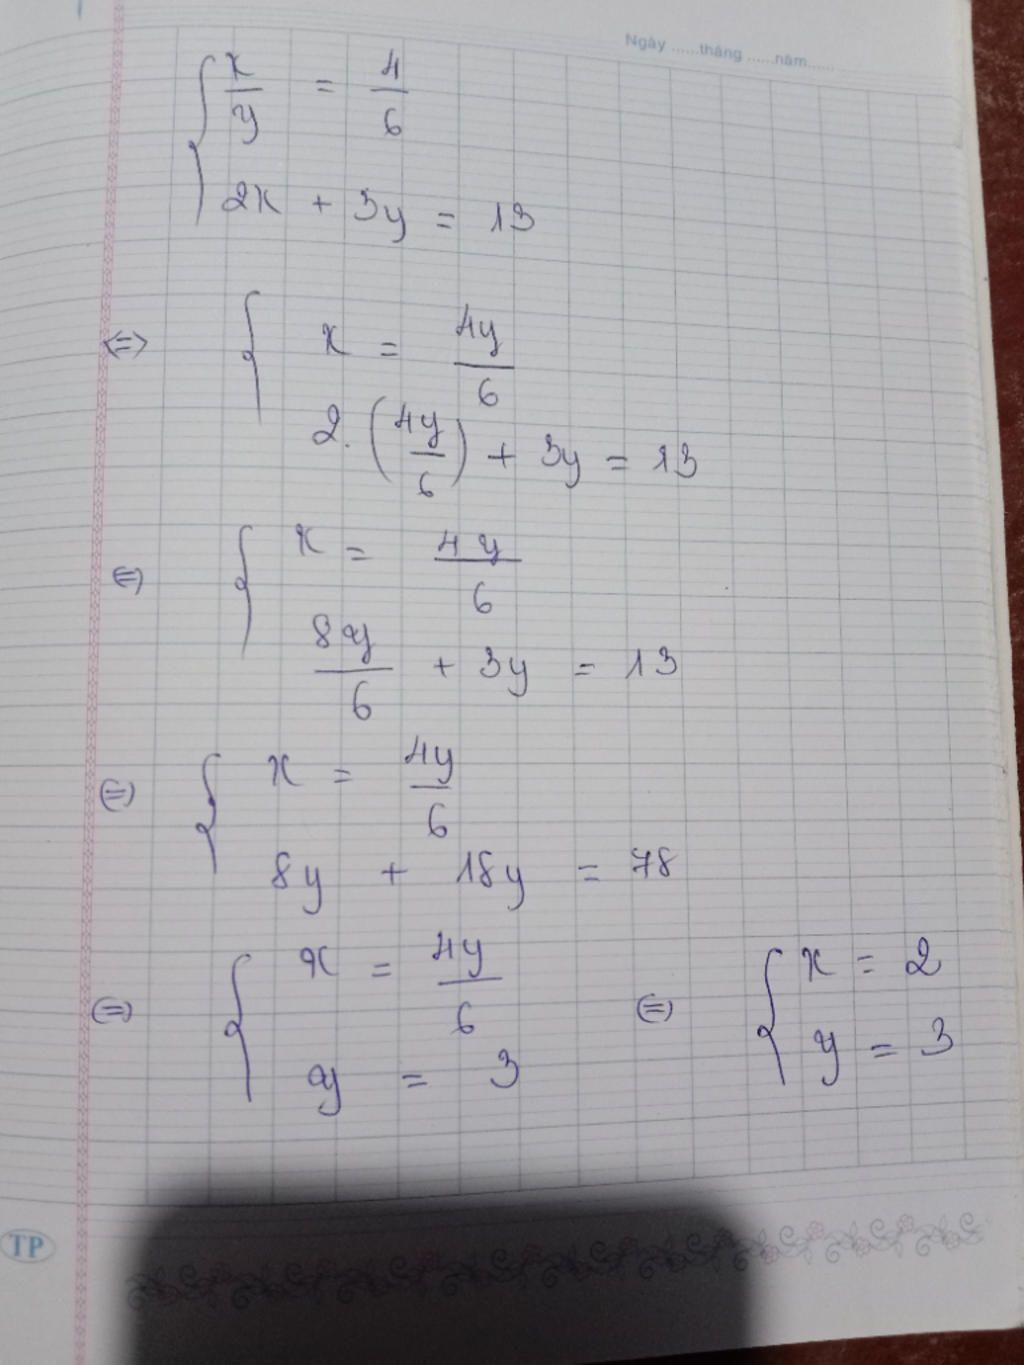 Ngày ......tháng ......năm......
{ x/y = 4/6
2x + 3y = 13
<=> { x = 4y/6
2.(4y/6) + 3y = 13
<=> { x = 4y/6
8y/6 + 3y = 13
<=> { x = 4y/6
8y + 18y = 78
<=> { x = 4y/6 <=> { x = 2
y = 3 y = 3
TP